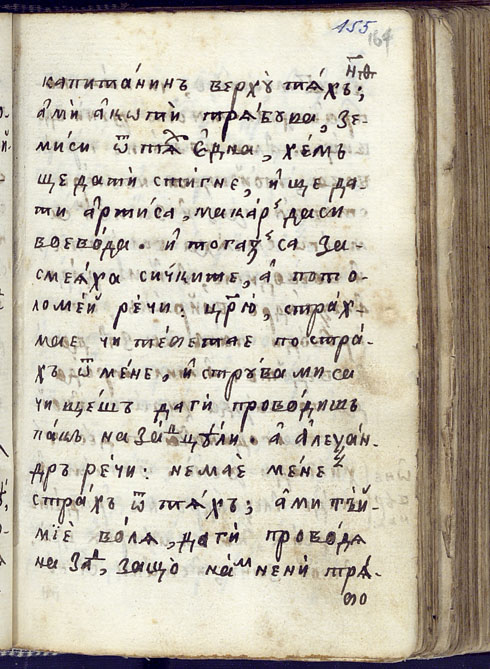 155
164
капита́нинъ верхꙋ тѧ́хъ;
а҆ми а҆коти̇ трѧ́бꙋва, зе
миси ѿ тѧ́ є҆дна, хе́мъ
ще дати̇ сти́гне, и҆ ще да
ти а҆рти́са, макарꙿ даси
воево́да. и҆ тогазꙿ са за-
смеѧ́ха сичките, а҆ пото-
ломе́й ре́чи: цр҃ю̀, стра́х
мае чи те́бетае по стра́-
хъ ѿ ме́не, и҆ стрꙋ́ва ми са
чи щешъ даги̇ прово́дишъ
па́къ на за́д щꙋли. а҆ а҆леѯа́н-
дръ ре́чи: нема́е ме́не
стра́хъ ѿ тѧ́хъ; а҆ми тъ́й
міѐ во́лѧ, даги̇ прово́дѧ
на за́д, защо̀ на́м нени трѧ́-